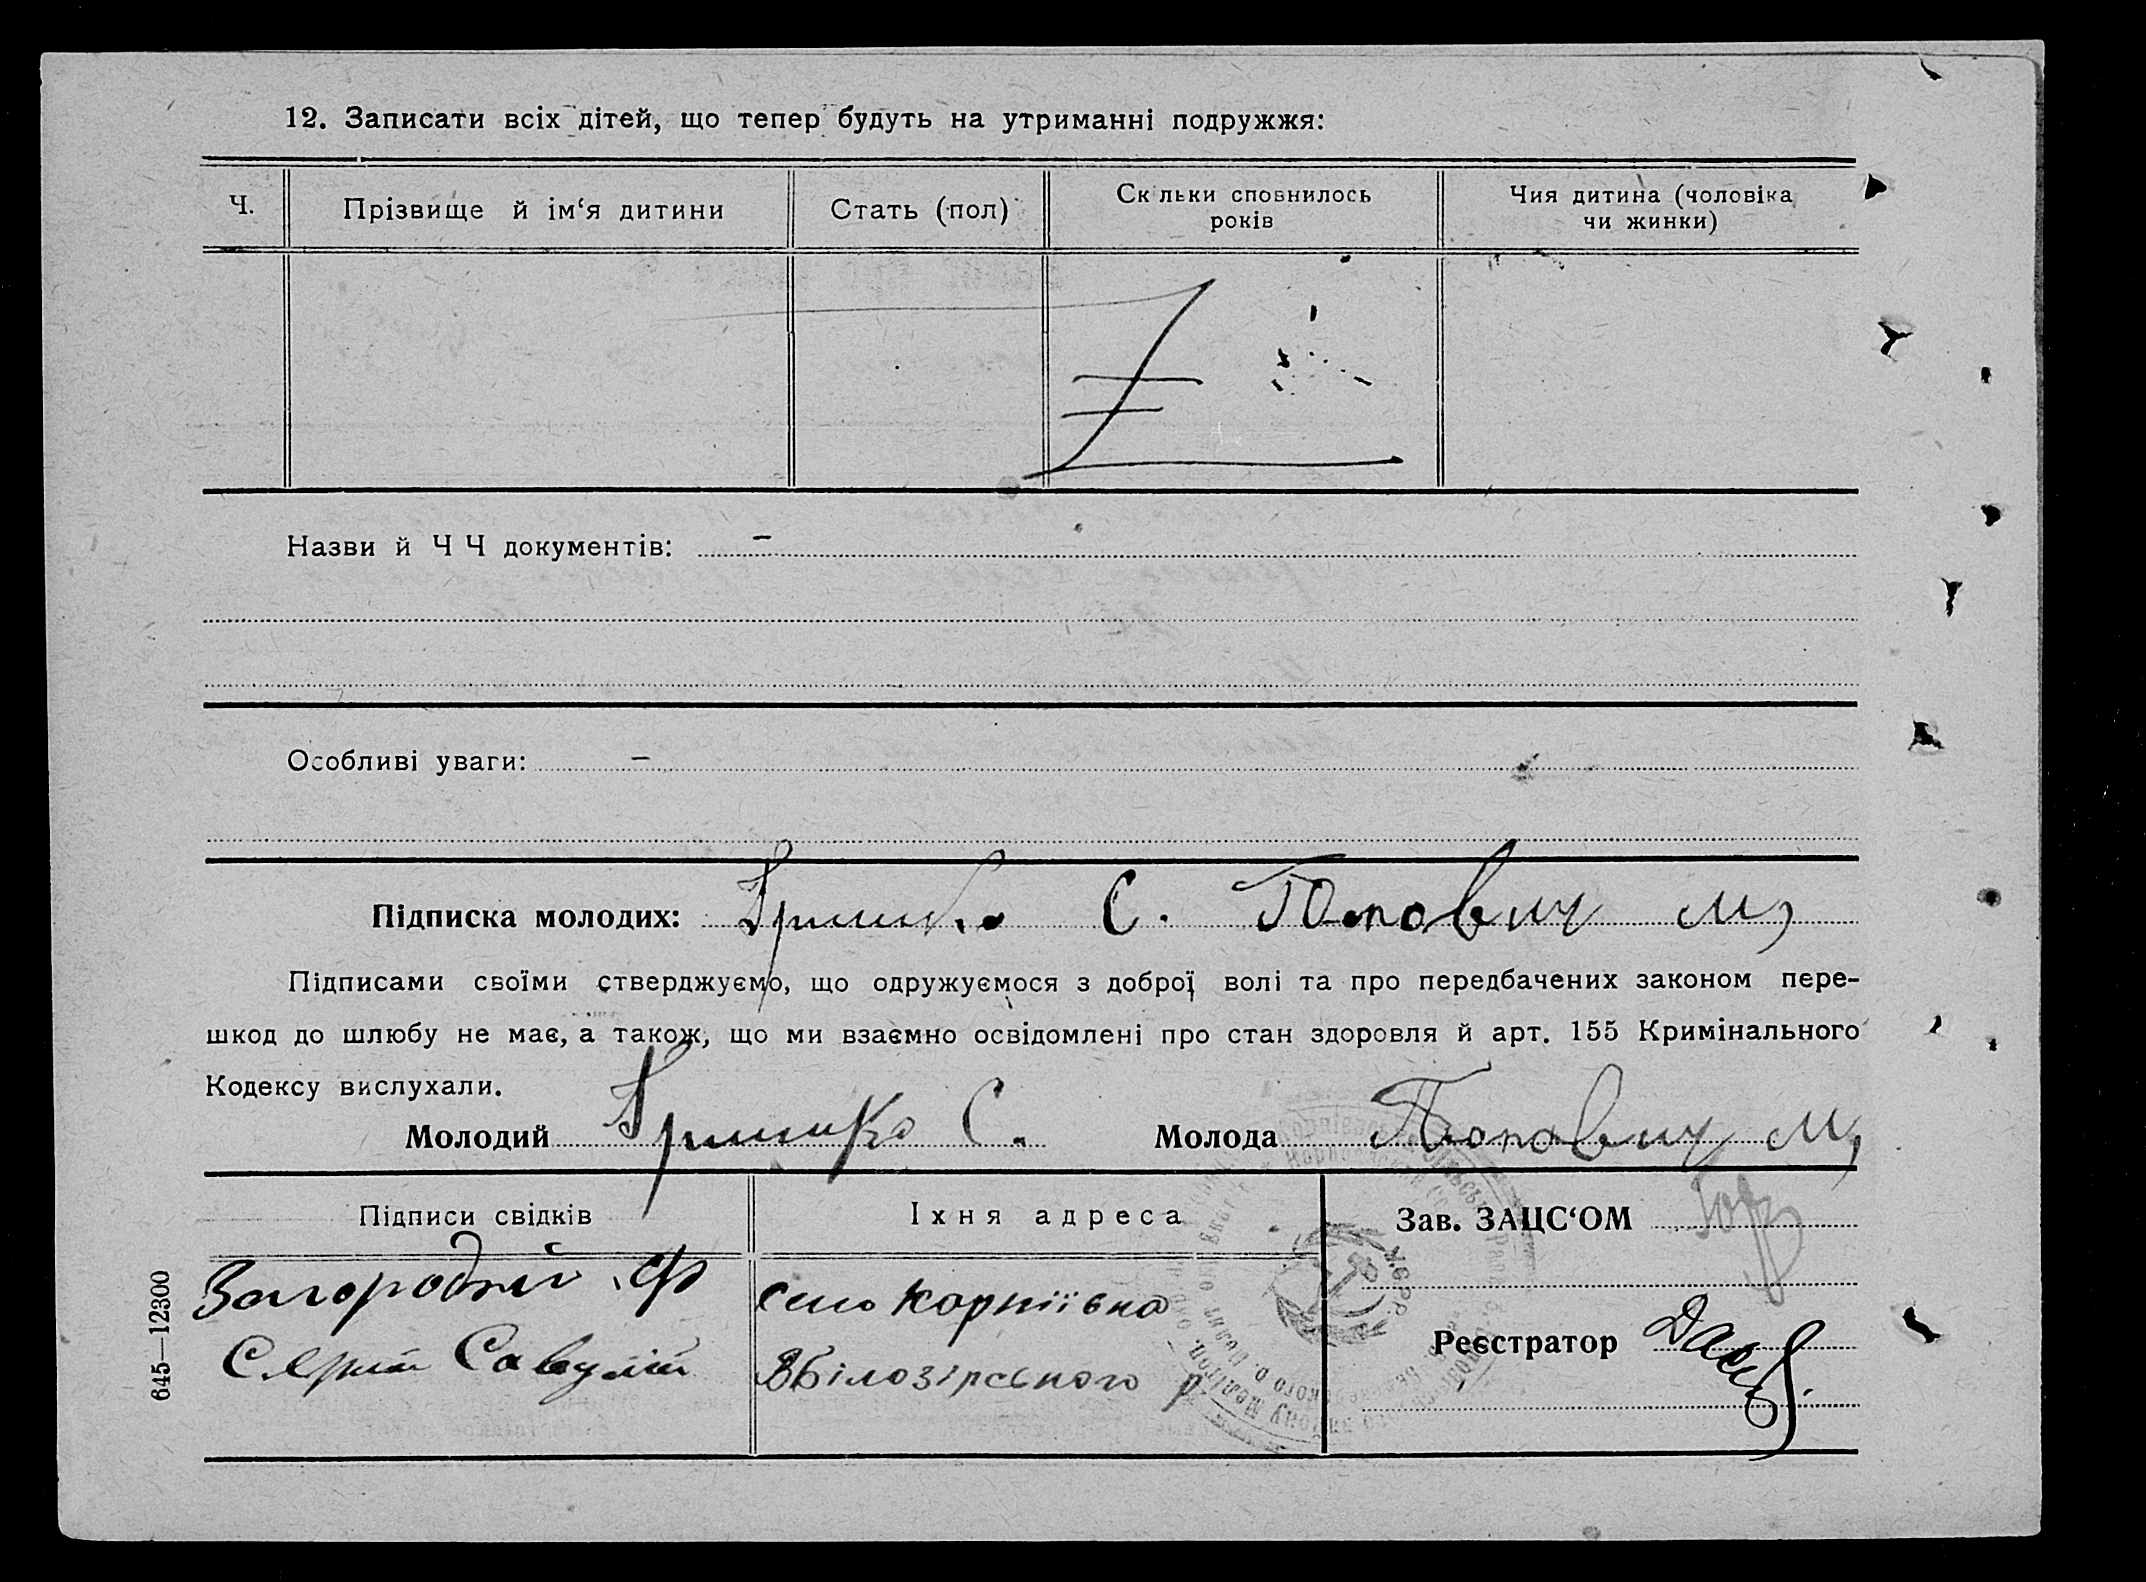 12. Записати всіх дітей, що тепер будуть на утриманні подружжя:
Ч.
Прізвище й ім‘я дитини
Стать (пол)
Скільки сповнилось
років
Чия дитина (чоловіка
чи жинки)
Назви й ЧЧ документів: –
Особливі уваги: –
Підписка молодих: С. Попович М,
Підписами своїми стверджуємо, що одружуємося з доброї волі та про передбачених законом пере-
шкод до шлюбу не має, а також, що ми взаємно освідомлені про стан здоровля й арт. 155 Кримінального
Кодексу вислухали.
Молодий С. Молода Попович М,
Підписи свідків
Їхня адреса
Зав. ЗАЦС‘ОМ
Загородній Ф
село Карпіївка
Савулій
Білозірського р
Реєстратор
645—12300
УСРР